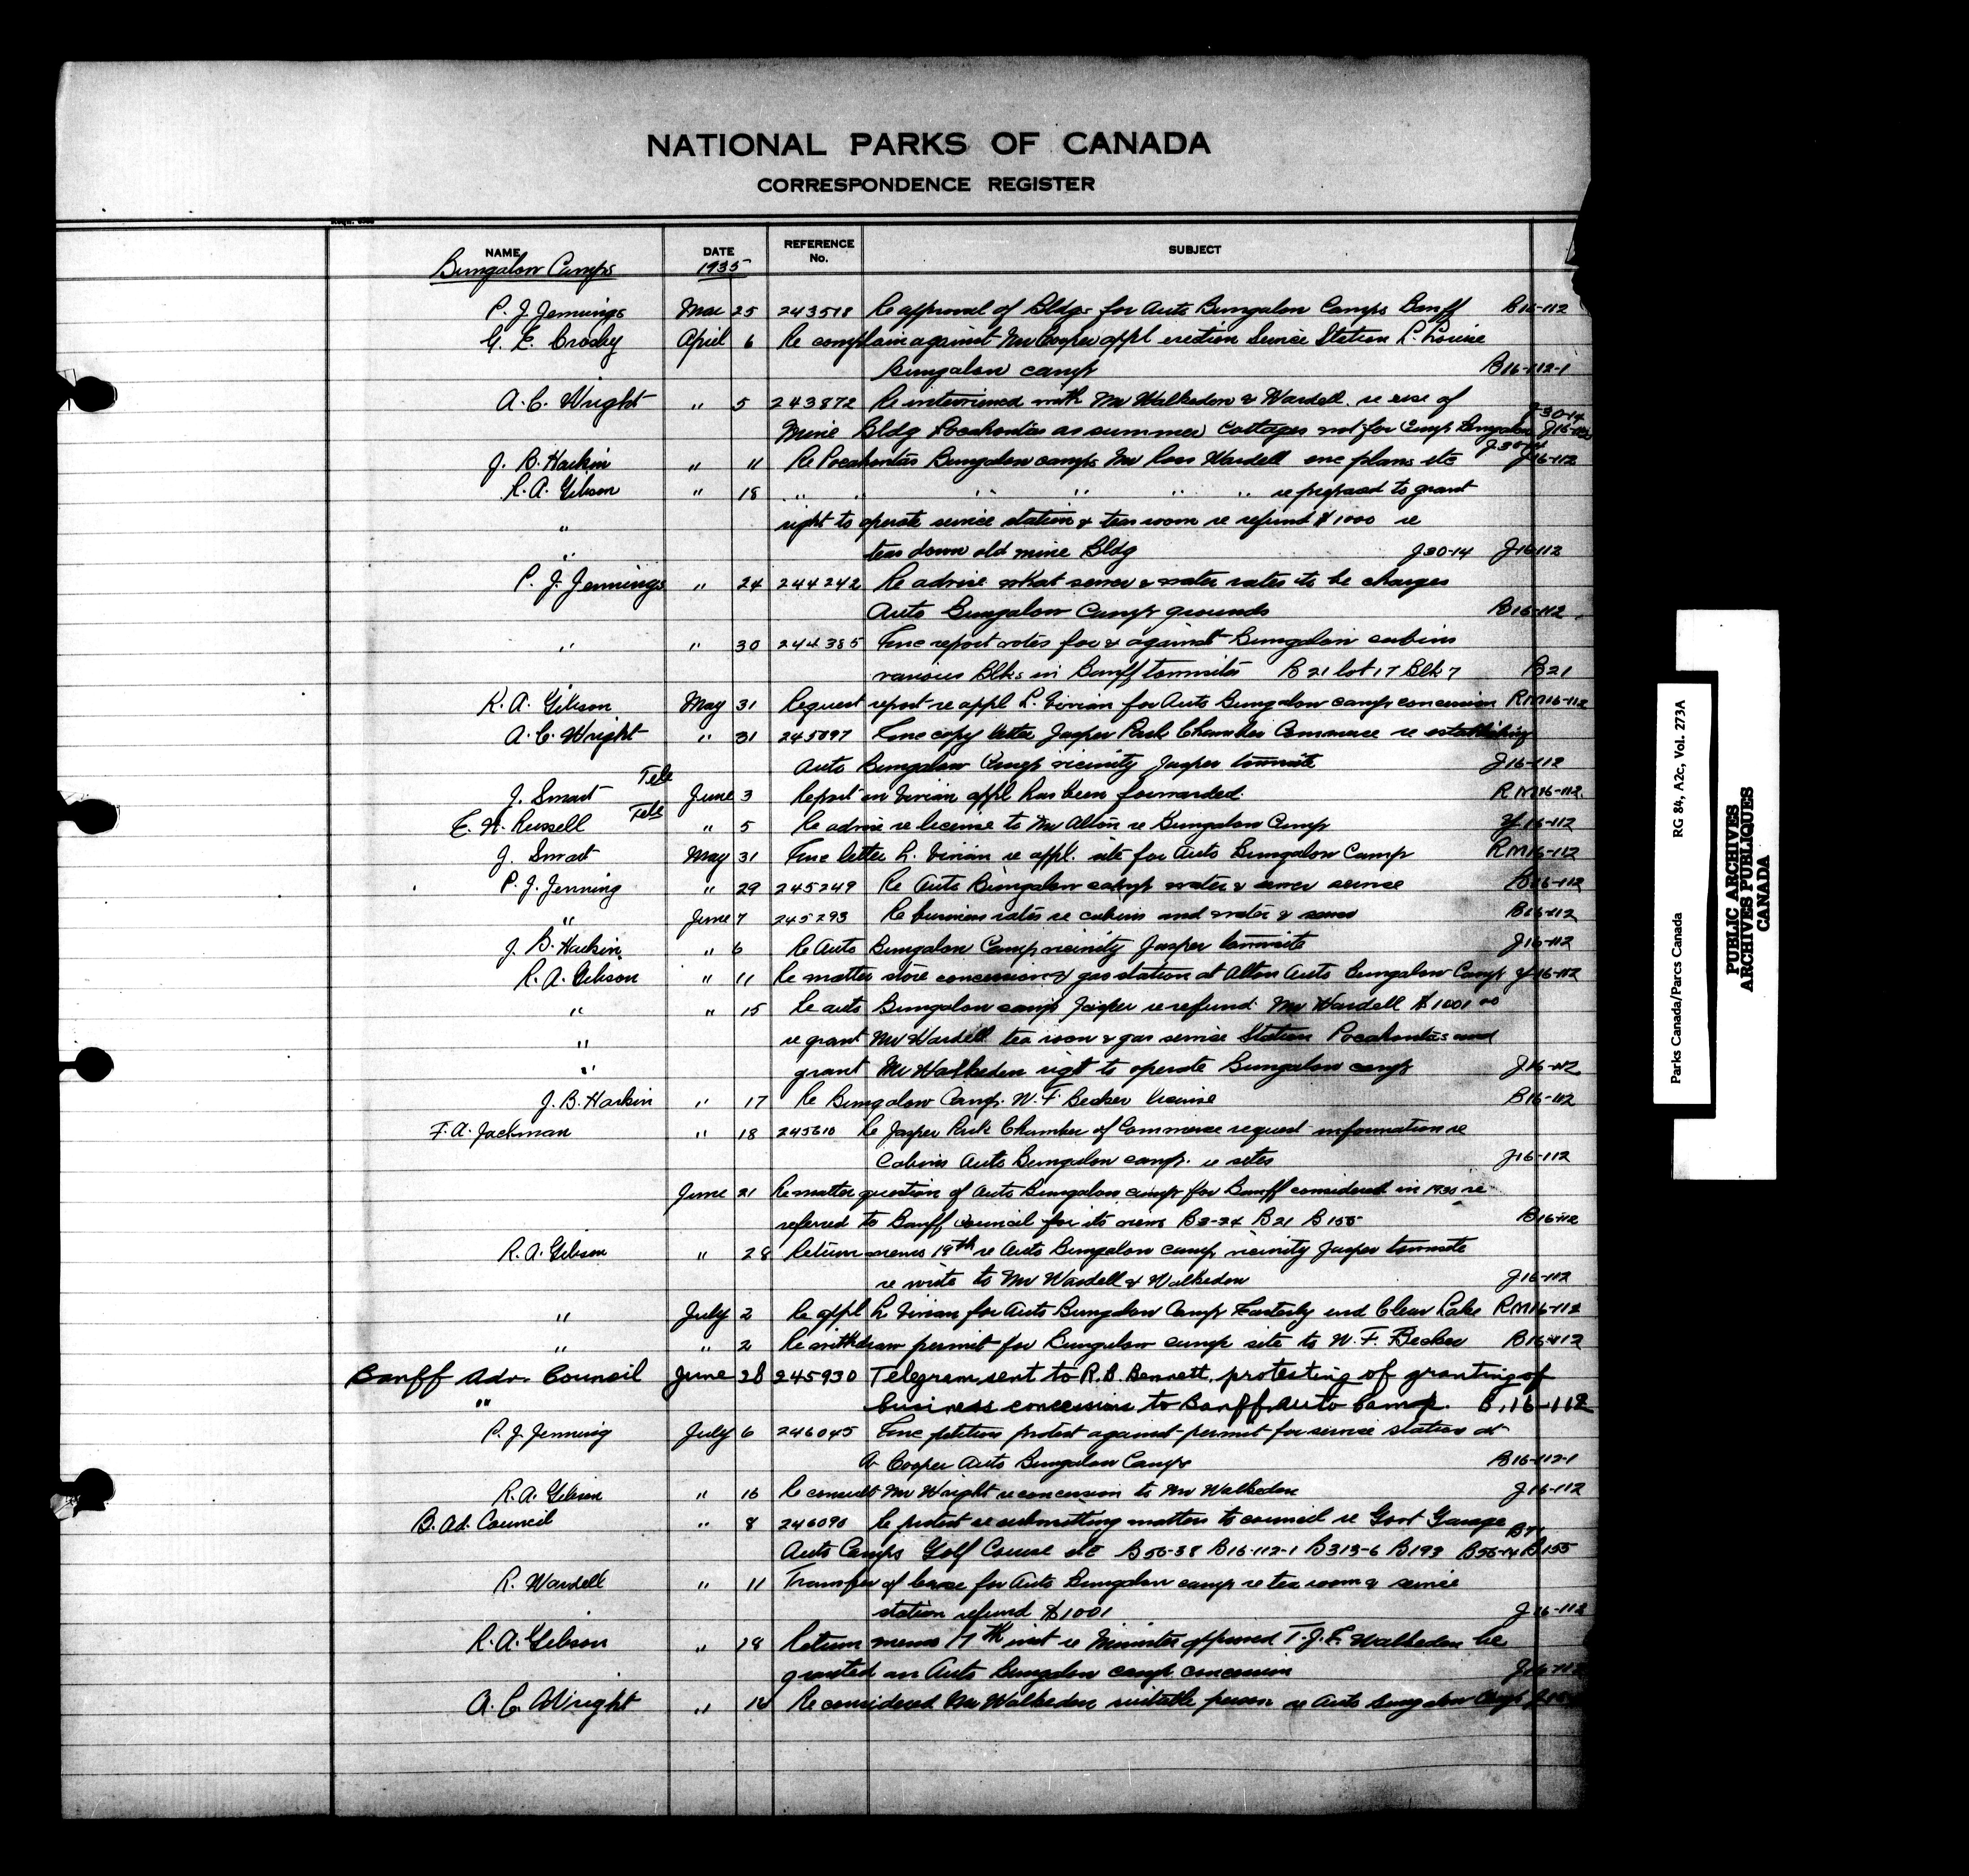 NATIONAL PARKS OF CANADA
CORRESPONDENCE REGISTER
NAME DATE REFERENCE No. SUBJECT
Bungalow Camps 1935
P. J. Jennings Mar 25 243518 Re approval of Bldgs for Auto Bungalow Camps Banff B16-112
G. E. Crosby April 6 Re complain against Mr Cooper appl erection Service Station L. Louise
Bungalow camp B16-112-1
A. C. Wright " 5 243872 Re interviewed with Mr Walkeden & Wardell re use of
Mine Bldg Pocahontas as summer cottages not for Camp Bungalow J30-14 J16-112
J. B. Harkin " 11 Re Pocahontas Bungalow camps Mr Ross Wardell enc plans etc J30-14 J16-112
R. A. Gibson " 18 " " " " " " re prepared to grant
" right to operate service station & tea room re refund $1000 re
" tear down old mine Bldg J30-14 J16-112
P. J. Jennings " 24 244242 Re advise what sewer & water rates to be charges
Auto Bungalow Camp grounds B16-112
" " 30 244385 Enc report votes for & against Bungalow cabins
various Blks in Banff townsite B21 lot 17 Blk 7 B21
R. A. Gibson May 31 Request report re appl L. Vivian for Auto Bungalow camp concession RM16-112
A. C. Wright " 31 245097 Enc copy letter Jasper Park Chamber Commerce re establishing
Auto Bungalow Camp vicinity Jasper townsite J16-112
J. Smart Tele June 3 Report on Vivian appl has been forwarded RM16-112
E. N. Russell Tele " 5 Re advise re license to Mr Alton re Bungalow Camp Y16-112
J. Smart May 31 Enc letter L. Vivian re appl. site for Auto Bungalow Camp RM16-112
P. J. Jenning " 29 245249 Re Auto Bungalow camp water & sewer service B16-112
" June 7 245293 Re business rates re cabins and water & sewer B16-112
J. B. Harkin " 6 Re Auto Bungalow Camp vicinity Jasper townsite J16-112
R. A. Gibson " 11 Re matter store concession & gas station at Alton Auto Bungalow Camp Y16-112
" " 15 Re auto Bungalow camp Jasper re refund Mr Wardell $1001.00
" re grant Mr Wardell tea room & gas service Station Pocahontas and
" grant Mr Walkeden right to operate Bungalow camp J16-112
J. B. Harkin " 17 Re Bungalow Camp. W. F. Becker license B16-112
F. A. Jackman " 18 245610 Re Jasper Park Chamber of Commerce request information re
Cabins Auto Bungalow camp. re sites J16-112
June 21 Re matter question of Auto Bungalow camp for Banff considered in 1930 re
referred to Banff Council for its views B2-24 B21 B155 B16-112
R. A. Gibson " 28 Return memo 19th re Auto Bungalow camp vicinity Jasper townsite
re write to Mr Wardell & Walkeden J16-112
" July 2 Re appl L Vivian for Auto Bungalow Camp Easterly end Clear Lake RM16-112
" " 2 Re withdraw permit for Bungalow camp site to W. F. Becker B16-112
Banff Adv. Council June 28 245930 Telegram sent to R. B. Bennett, protesting of granting of
" business concessions to Banff Auto Camp. B.16-112
P. J. Jenning July 6 246045 Enc petition protest against permit for service station at
A Cooper Auto Bungalow Camps B16-112-1
R. A. Gibson " 16 Re consult Mr Wright re concession to Mr Walkeden J16-112
B. Ad. Council " 8 246090 Re protest re submitting matters to council re Govt Garage
Auto Camps Golf Course etc B56-38 B16-112-1 B313-6 B193 B56-14 B155
R. Wardell " 11 Transfer of lease for Auto Bungalow camp re tea room & service
station refund $1001 J16-112
R. A. Gibson " 18 Return memo 17th inst re Minister approved T. J. E. Walkeden be
granted an Auto Bungalow camp concession J16-112
A. C. Wright " 14 Re considered Mr Walkeden suitable person re Auto Bungalow Camp
Parks Canada/Parcs Canada RG 84, A2c, Vol. 273A
PUBLIC ARCHIVES
ARCHIVES PUBLIQUES
CANADA